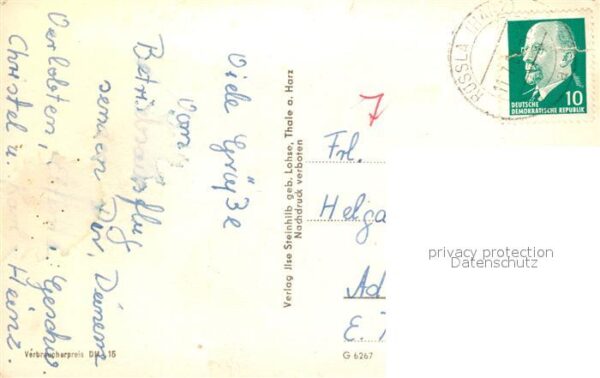 Viele Grüße
vom
Betriebsausflug
senden Dir, Deinem
Verlobten, u. Geschw.
Christel u. Heinz.
Verbraucherpreis DM -,15
Verlag Jlse Steinhilb geb. Lohse, Thale a. Harz
Nachdruck verboten
7
Frl.
Helga
Ad
E.
G 6267
ROSSLA
DEUTSCHE
DEMOKRATISCHE REPUBLIK
10
privacy protection
Datenschutz